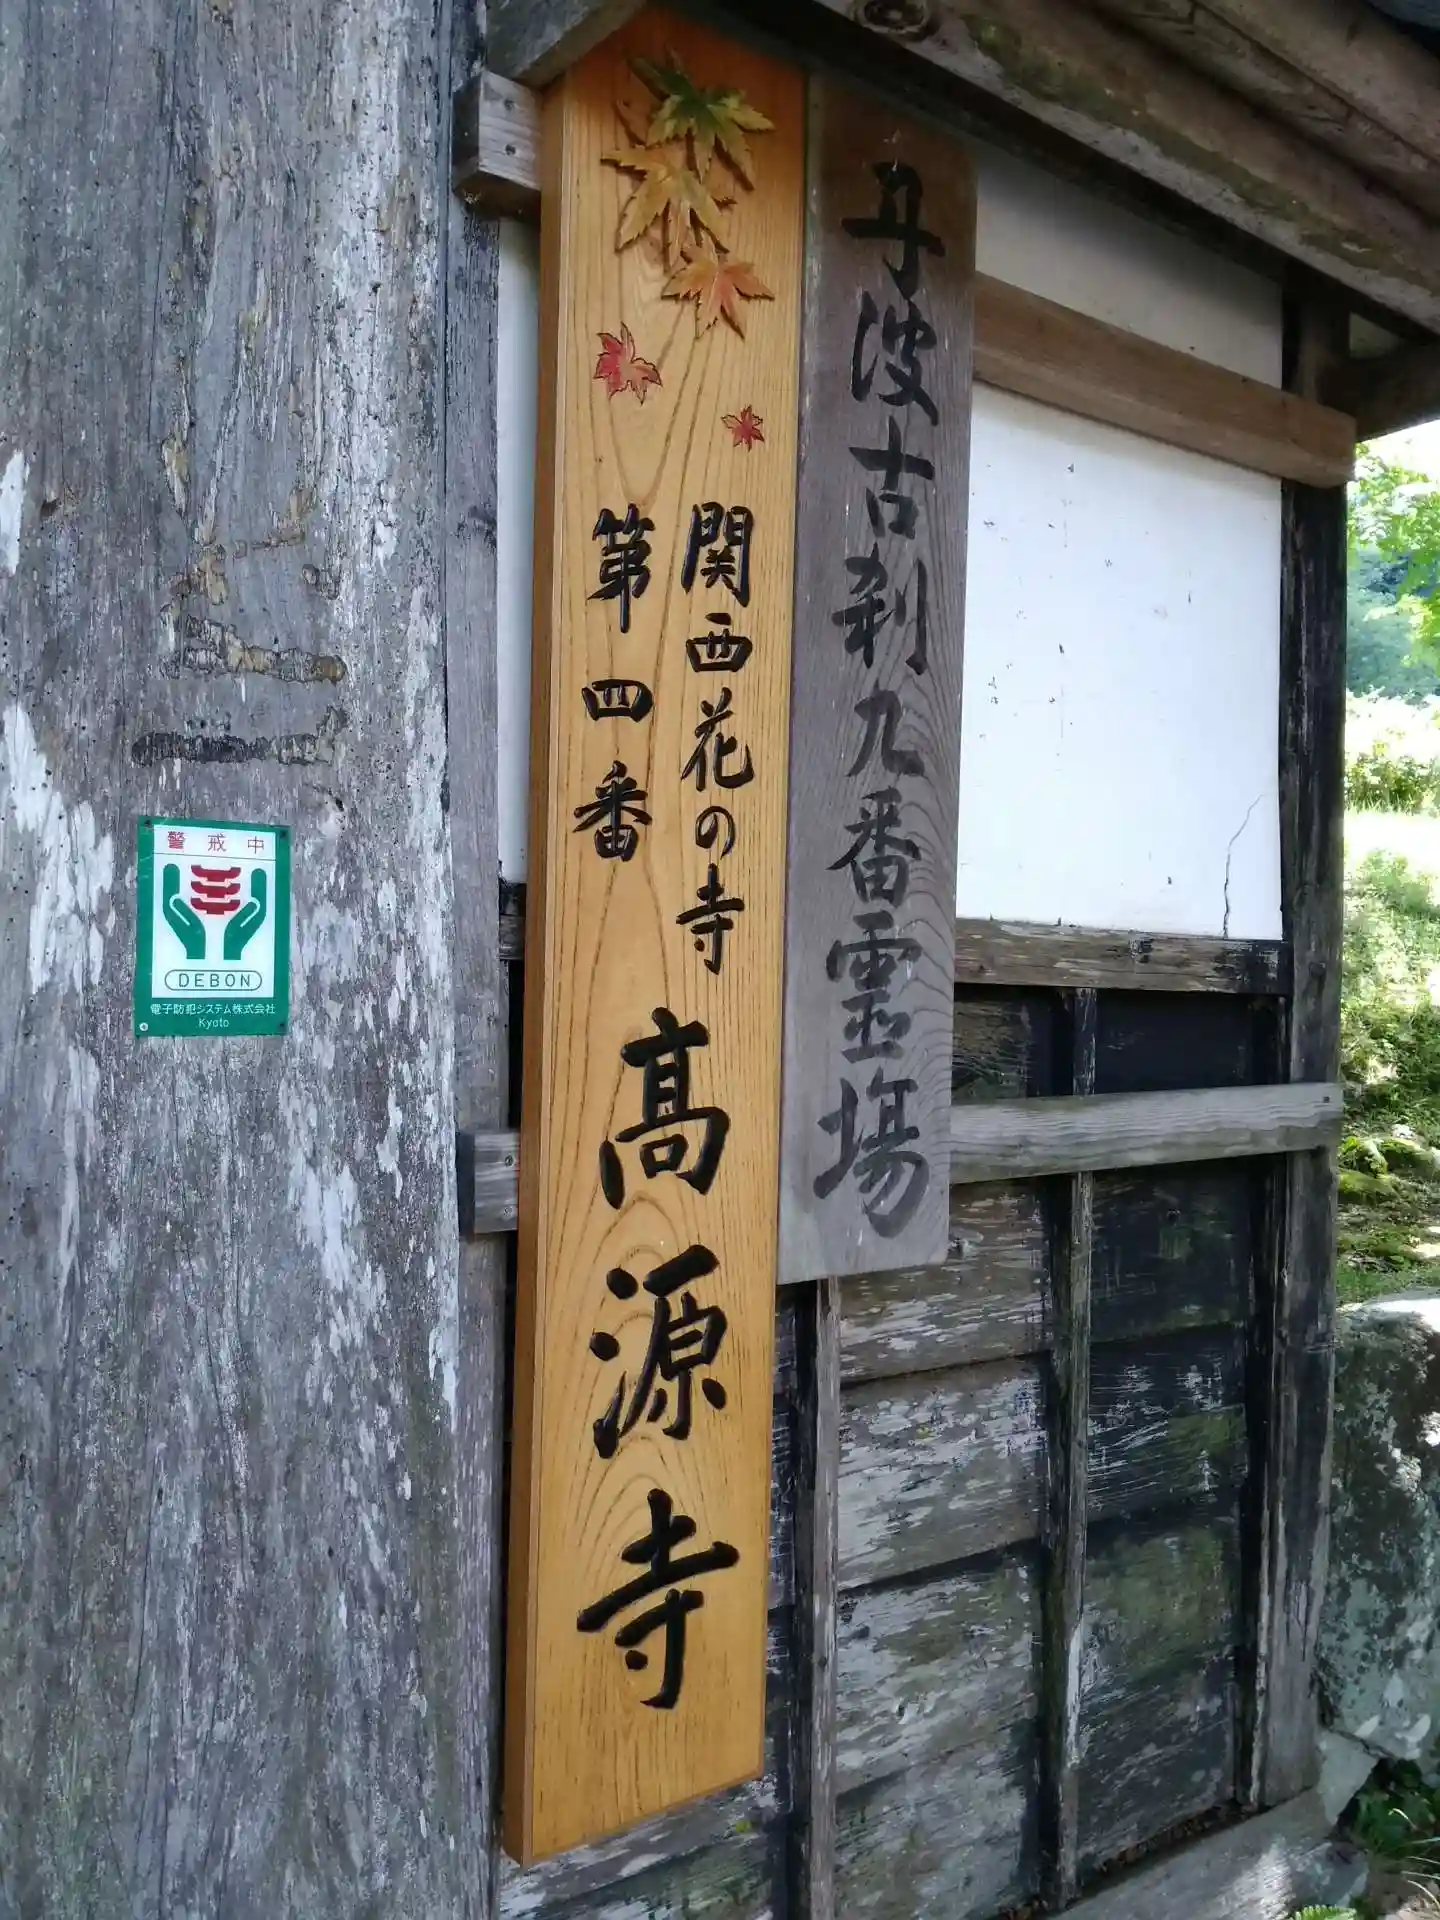 丹波古刹九番霊場
関西花の寺
第四番
高源寺
警戒中
DEBON
電子防犯システム株式会社
Kyoto